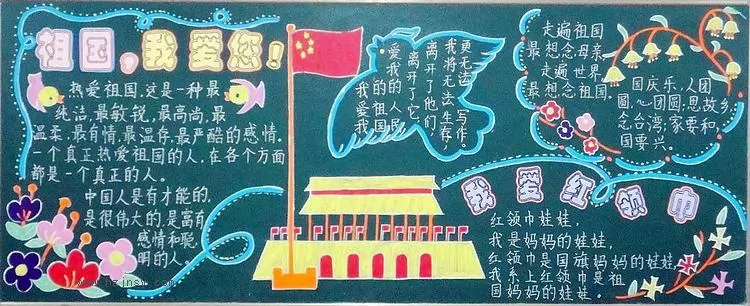 祖国,我爱您!
热爱祖国,这是一种最
纯洁,最敏锐,最高尚,最
温柔,最有情,最温存,最严酷的感情.
一个真正热爱祖国的人,在各个方面
都是一个真正的人。
中国人是有才能的,
是很伟大的,是富有
感情和聪
明的人。
我爱我
的祖国
爱我的人民
离开了它,
离开了他们,
我将无法生存,
更无法写作。
走遍祖国
最想念母亲
走遍世界
最想念祖国.
国庆乐,人团
圆,心团圆;思故乡,
念台湾;家要和,
国要兴。
我爱红领巾
红领巾娃娃,
我是妈妈的娃娃,
红领巾是国旗妈妈的娃娃,
我系上红领巾是祖
国妈妈的娃娃